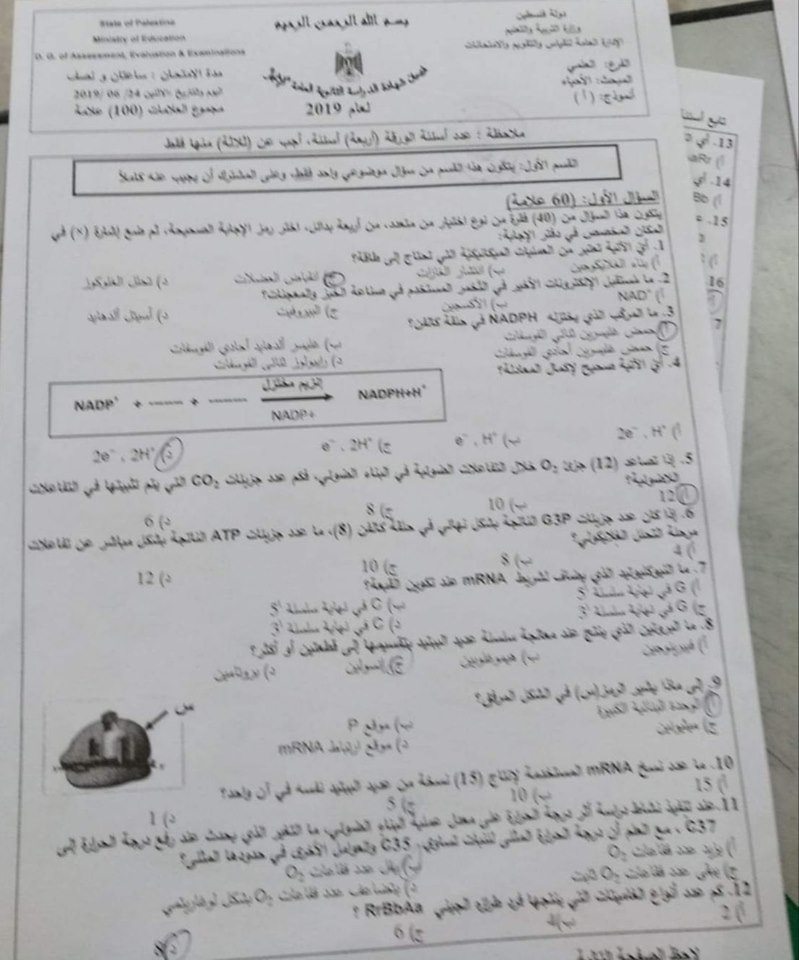 State of Palestine
Ministry of Education
D. G. of Assessment, Evaluation & Examinations
بسم الله الرحمن الرحيم
دولة فلسطين
وزارة التربية والتعليم
الإدارة العامة للقياس والتقويم والامتحانات
الفرع: العلمي
المبحث: الأحياء
أنموذج: ( أ )
امتحان شهادة الدراسة الثانوية العامة
لعام 2019
مدة الامتحان : ساعتان و نصف
اليوم والتاريخ: الاثنين 24/ 06 /2019
مجموع العلامات (100) علامة
ملاحظة : عدد أسئلة الورقة (أربعة) أسئلة، أجب عن (ثلاثة) منها فقط
القسم الأول: يتكون هذا القسم من سؤال موضوعي واحد فقط، وعلى المشترك أن يجيب عنه كاملاً
السؤال الأول: (60 علامة)
يتكون هذا السؤال من (40) فقرة من نوع اختيار من متعدد، من أربعة بدائل، اختر رمز الإجابة الصحيحة، ثم ضع إشارة (×) في
المكان المخصص في دفتر الإجابة:
1. أي الآتية تعتبر من العمليات الميكانيكية التي تحتاج إلى طاقة؟
أ) بناء الغلايكوجين ب) انتشار الغازات ج) انقباض العضلات د) تحلل الغلوكوز
2. ما مستقبل الإلكترونات الأخير في التخمر المستخدم في صناعة الخبز والمعجنات؟
أ) NAD⁺ ب) الأكسجين ج) البيروفيت د) أسيتال ألدهايد
3. ما المركب الذي يختزله NADPH في حلقة كالفن؟
أ) حمض غليسرين ثنائي الفوسفات ب) غليسر ألدهايد أحادي الفوسفات
ج) حمض غليسرين أحادي الفوسفات د) رايبولوز ثنائي الفوسفات
4. أي الآتية صحيح لإكمال المعادلة؟
NADP⁺ + ------ + ------ إنزيم مختزل NADP+ NADPH+H⁺
أ) 2e⁻ , H⁺ ب) e⁻ , H⁺ ج) e⁻ , 2H⁺ د) 2e⁻ , 2H⁺
5. إذا تصاعد (12) جزئ O₂ خلال التفاعلات الضوئية في البناء الضوئي، فكم عدد جزيئات CO₂ التي يتم تثبيتها في التفاعلات
اللاضوئية؟
أ) 12 ب) 10 ج) 8 د) 6
6. إذا كان عدد جزيئات G3P الناتجة بشكل نهائي في حلقة كالفن (8)، ما عدد جزيئات ATP الناتجة بشكل مباشر عن تفاعلات
مرحلة التحلل الغلايكولي؟
أ) 4 ب) 8 ج) 10 د) 12
7. ما النيوكليوتيد الذي يضاف لشريط mRNA عند تكوين القبعة؟
أ) G في نهاية سلسلة 5' ب) C في نهاية سلسلة 5'
ج) G في نهاية سلسلة 3' د) C في نهاية سلسلة 3'
8. ما البروتين الذي ينتج عند معالجة سلسلة عديد الببتيد بتقسيمها إلى قطعتين أو أكثر؟
أ) فيبرينوجين ب) هيموغلوبين ج) إنسولين د) بروتامين
9. إلى ماذا يشير الرمز (س) في الشكل المرفق؟
أ) الوحدة البنائية الكبيرة ب) موقع P
ج) ميثيونين د) موقع ارتباط mRNA
س
10. ما عدد نسخ mRNA المستخدمة لإنتاج (15) نسخة من عديد الببتيد نفسه في آن واحد؟
أ) 15 ب) 10 ج) 5 د) 1
11. عند تنفيذ نشاط دراسة أثر درجة الحرارة على معدل عملية البناء الضوئي، ما التغير الذي يحدث عند رفع درجة الحرارة إلى
C37 ، مع العلم أن درجة الحرارة المثلى للنبات تساوي C35 والعوامل الأخرى في حدودها المثلى؟
أ) يزيد عدد فقاعات O₂ ب) يقل عدد فقاعات O₂
ج) يبقى عدد فقاعات O₂ ثابت د) يتضاعف عدد فقاعات O₂ بشكل لوغاريتمي
12. كم عدد أنواع الغاميتات التي ينتجها فرد طرازه الجيني RrBbAa ؟
أ) 2 ب) 4 ج) 6 د) 8
لاحظ الصفحة التالية
تابع أسئلة
13. أي
14. أي
Bb
15.
16
7